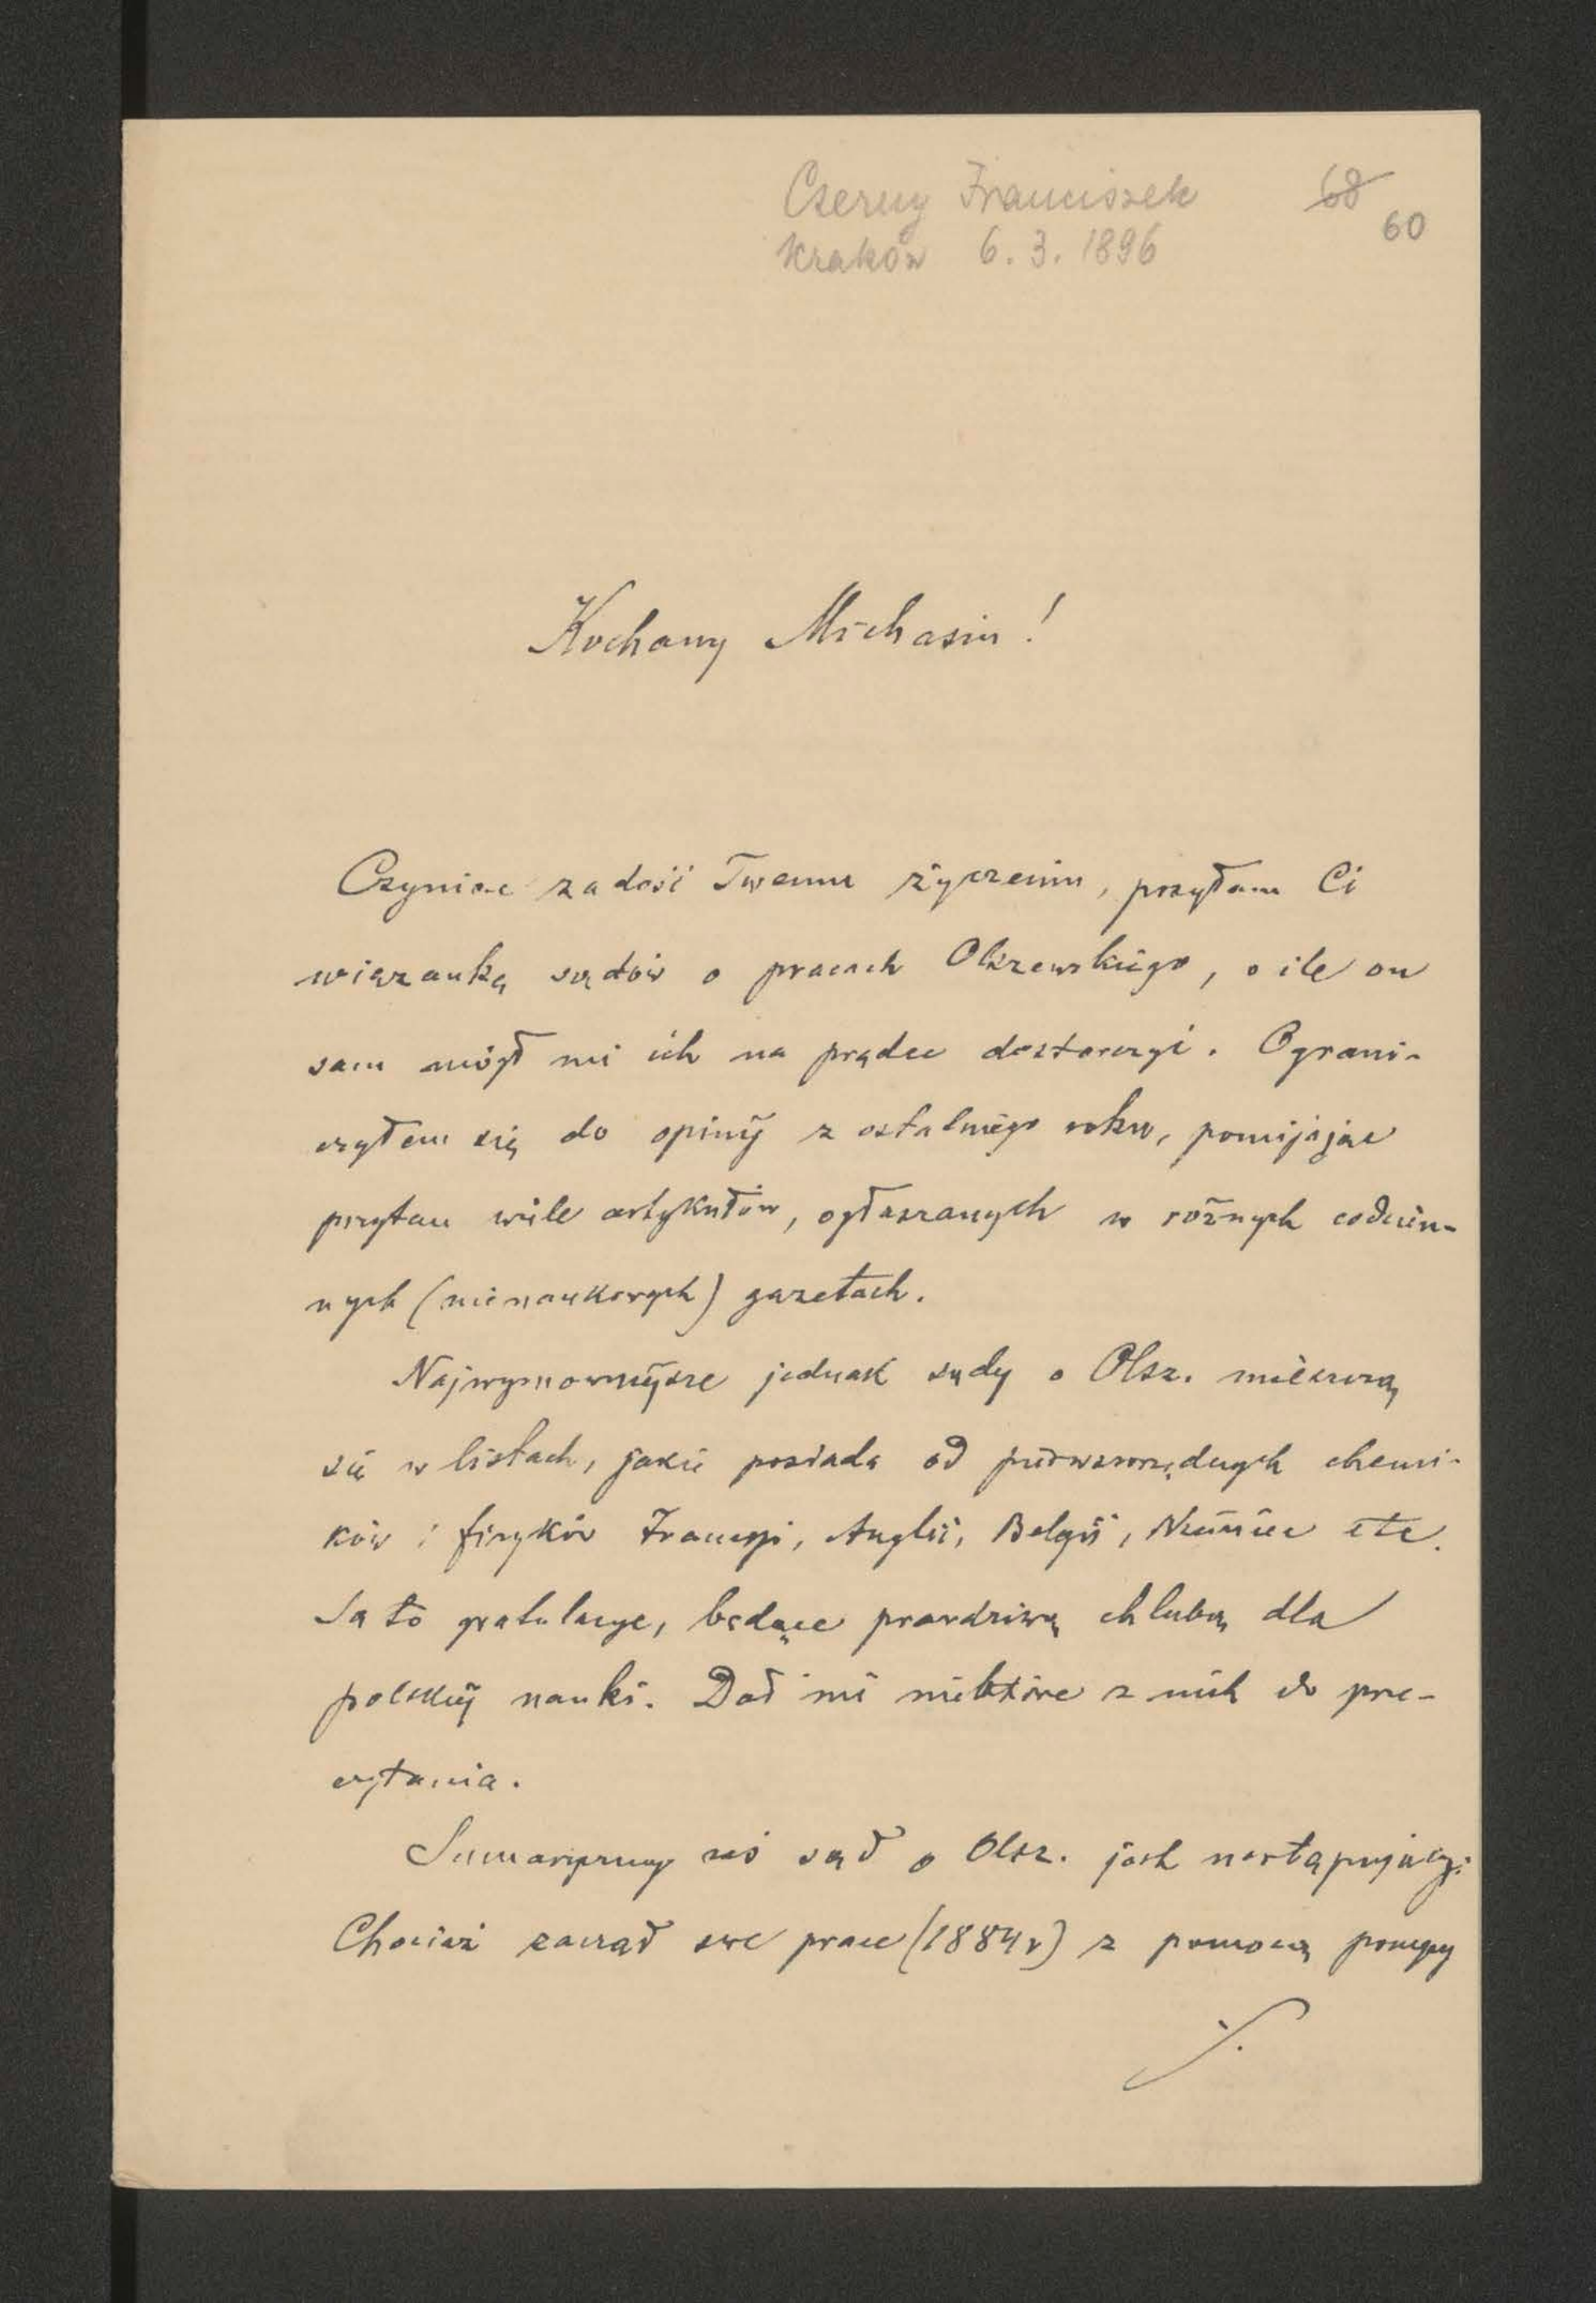 Czerny Franciszek 68
Kraków 6. 3. 1896 60
Kochany Michasiu!
Czyniąc zadość Twemu życzeniu, posyłam Ci
wiązankę sądów o pracach Olszewskiego, o ile on
sam mógł mi ich na prędce dostarczyć. Ograni-
czyłem się do opinij z ostatniego roku, pomijając
przytem wiele artykułów, ogłaszanych w różnych codzien-
nych (nienaukowych) gazetach.
Najwymowniejsze jednak sądy o Olsz. mieszczą
się w listach, jakie posiada od pierwszorzędnych chemi-
ków i fizyków Francyi, Anglii, Belgii, Niemiec etc.
Są to gratulacye, będące prawdziwą chlubą dla
polskiej nauki. Dał mi niektóre z nich do prze-
czytania.
Sumaryczny zaś sąd o Olsz. jest następujący:
Chociaż zaczął swe prace (1884 r) z pomocą pompy